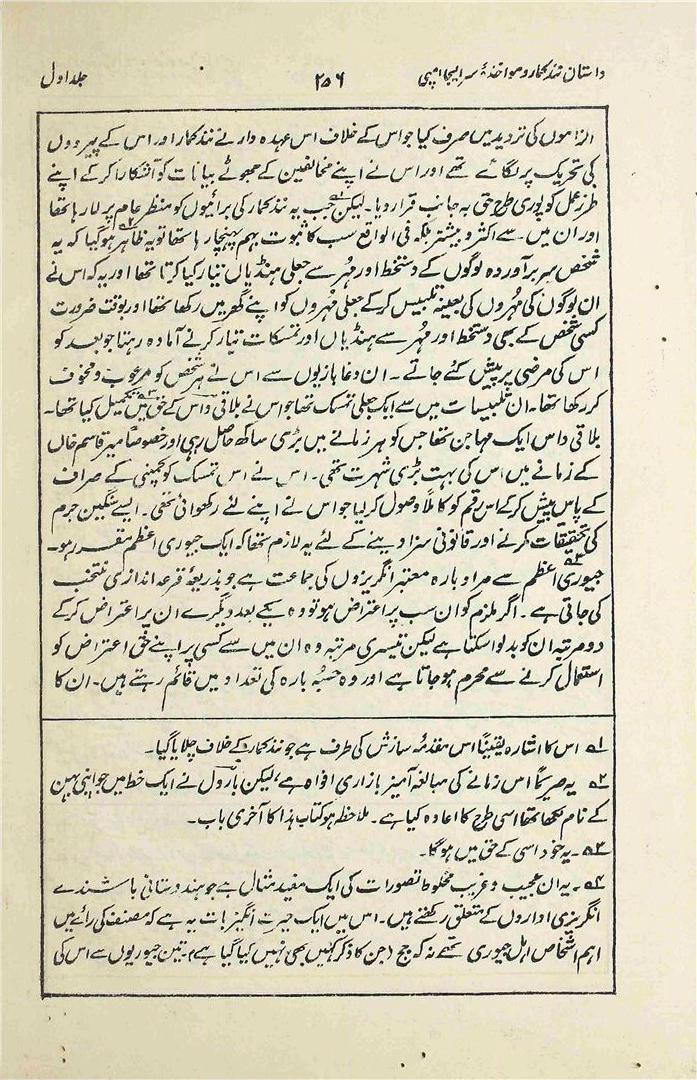 داستان نندکمار و مواخذۂ سر ایلیجا امپی ۲۵۶ جلد اول
الزاموں کی تردید میں صرف کیا جو اس کے خلاف اس عہدہ دار نے نندکمار اور اس کے پیرووں
کی تحریک پر لگائے تھے اور اس نے اپنے مخالفین کے جھوٹے بیانات کو آشکارا کرکے اپنے
طرز عمل کو پوری طرح حق بہ جانب قرار دیا۔ لیکن جب یہ نندکمار کی برائیوں کو منظر عام پر لا رہا تھا
اور ان میں سے اکثر و بیشتر بلکہ فی الواقع سب کا ثبوت بہم پہنچا رہا تھا تو یہ ظاہر ہوگیا کہ یہ
شخص سربرآوردہ لوگوں کے دستخط اور مہر سے جعلی ہنڈیاں تیار کیا کرتا تھا اور یہ کہ اس نے
ان لوگوں کی مُہروں کی بعینہٖ تلبیس کرکے جعلی مُہروں کو اپنے گھر میں رکھا تھا اور بوقت ضرورت
کسی شخص کے بھی دستخط اور مُہر سے ہنڈیاں اور تمسکات تیار کرنے آمادہ رہتا جو بعد کو
اس کی مرضی پر پیش کئے جاتے۔ ان دغابازیوں سے اس نے ہر شخص کو مرعوب و مخوف
کر رکھا تھا۔ ان تلبیسات میں سے ایک جعلی تمسک تھا جو اس نے بلاقی داس کے حق میں۳ تکمیل کیا تھا۔
بلاقی داس ایک مہاجن تھا جس کو ہر زمانے میں بڑی ساکھ حاصل رہی اور خصوصاً میر قاسم خاں
کے زمانے میں اس کی بہت بڑی شہرت تھی۔ اس نے اس تمسک کو کمپنی کے صراف
کے پاس پیش کرکے اس رقم کو کاملاً وصول کرلیا جو اس نے اپنے لئے رکھوائی تھی۔ ایسے سنگین جرم
کی تحقیقات کرنے اور قانونی سزا دینے کے لئے یہ لازم تھا کہ ایک جیوری اعظم مقرر ہو۔
جیوری اعظم۴ سے مراد بارہ معتبر انگریزوں کی جماعت ہے جو بذریعۂ قرعہ اندازی منتخب
کی جاتی ہے۔ اگر ملزم کو ان سب پر اعتراض ہو تو وہ یکے بعد دیگرے ان پر اعتراض کرکے
دو مرتبہ ان کو بدلوا سکتا ہے لیکن تیسری مرتبہ وہ ان میں سے کسی پر اپنے حق اعتراض کو
استعمال کرنے سے محروم ہوجاتا ہے اور وہ حسبہٖ بارہ کی تعداد میں قائم رہتے ہیں۔ ان کا
۱ اس کا اشارہ یقیناً اس مقدمۂ سازش کی طرف ہے جو نندکمار کے خلاف چلایا گیا۔
۲ یہ صریحاً اس زمانے کی مبالغہ آمیز بازاری افواہ ہے، لیکن بارول نے ایک خط میں جو اپنی بہن
کے نام لکھا تھا اسی طرح کا اعادہ کیا ہے۔ ملاحظہ ہو کتاب ہذا کا آخری باب۔
۳۔ یہ خود اسی کے حق میں ہوگا۔
۴۔ یہ ان عجیب و غریب مخلوط تصورات کی ایک مفید مثال ہے جو ہندوستانی باشندے
انگریزی اداروں کے متعلق رکھتے ہیں۔ اس میں ایک حیرت انگیز بات یہ ہے کہ مصنف کی رائے میں
اہم اشخاص اہل جیوری تھے نہ کہ جج (جن کا ذکر کہیں بھی نہیں کیا گیا ہے) تین جیوریوں سے اس کی